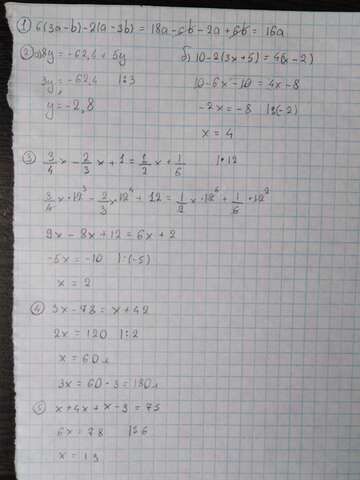 ① 6(3a-b)-2(a-3b) = 18a-6b-2a+6b = 16a
② а) 8y = -62,4 + 5y
б) 10-2(3x+5) = 4(x-2)
3y = -62,4 |:3
10-6x-10 = 4x-8
y = -2,8
x = 4
③ 3/4 x - 2/3 x + 1 = 1/2 x + 1/6 |·12
3/4 x·12³ - 2/3 x·12⁴ + 12 = 1/2 x·12⁶ + 1/6·12²
9x - 8x + 12 = 6x + 2
-5x = -10 |:(-5)
x = 2
④ 3x - 78 = x + 42
2x = 120 |:2
x = 60 л
3x = 60·3 = 180 л
⑤ x + 4x + x - 3 = 75
6x = 78 |:6
x = 13